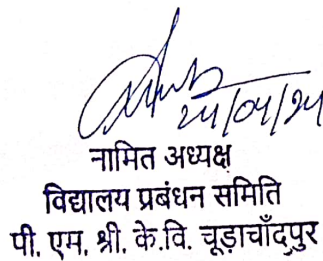 24/04/24
नामित अध्यक्ष
विद्यालय प्रबंधन समिति
पी. एम. श्री. के.वि. चूड़ाचाँदपुर